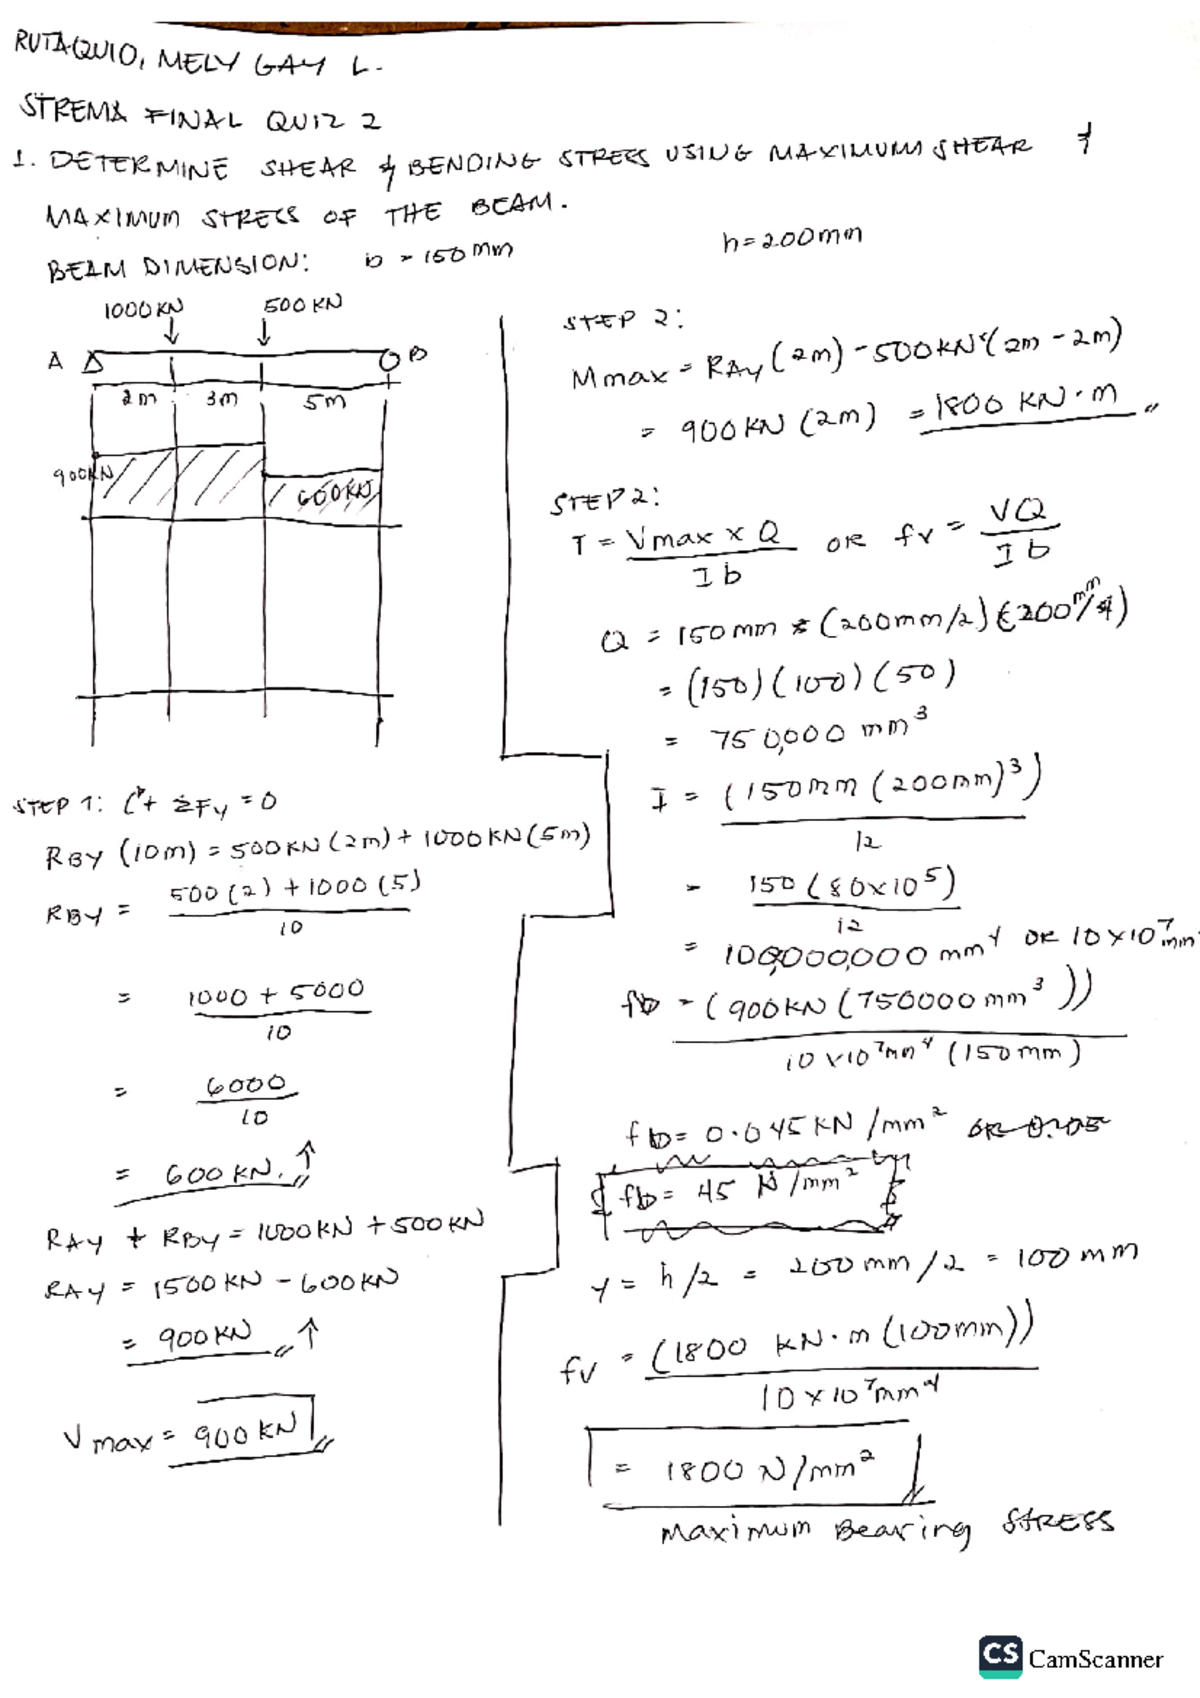 RUTAQUIO, MELY GAY L.
STREMA FINAL QUIZ 2
1. DETERMINE SHEAR & BENDING STRESS USING MAXIMUM SHEAR &
MAXIMUM STRESS OF THE BEAM.
BEAM DIMENSION: b = 150 mm h = 200mm
1000KN 500 KN
A B
2m 3m 5m
900KN
600KN
STEP 1: ΣFy = 0
RBY (10m) = 500KN (2m) + 1000KN (5m)
RBY = 500 (2) + 1000 (5)
10
= 1000 + 5000
10
= 6000
10
= 600 KN. ↑
RAY + RBY = 1000KN + 500KN
RAY = 1500KN - 600KN
= 900KN ↑
Vmax = 900KN
STEP 2:
Mmax = RAY (2m) - 500KN (2m - 2m)
= 900KN (2m) = 1800 KN·m
STEP 2:
T = Vmax x Q OR fv = VQ
Ib Ib
Q = 150mm * (200mm/2) (200mm/4)
= (150) (100) (50)
= 750,000 mm³
I = (150mm (200mm)³)
12
= 150 (80x10⁵)
12
= 100,000,000 mm⁴ OR 10x10⁷mm
fb = (900KN (750000mm³))
10x10⁷mm⁴ (150mm)
fb = 0.045 KN/mm²
fb = 45 N/mm²
y = h/2 = 200mm/2 = 100mm
fv = (1800 KN·m (100mm))
10x10⁷mm⁴
= 1800 N/mm²
Maximum Bearing STRESS
CS CamScanner